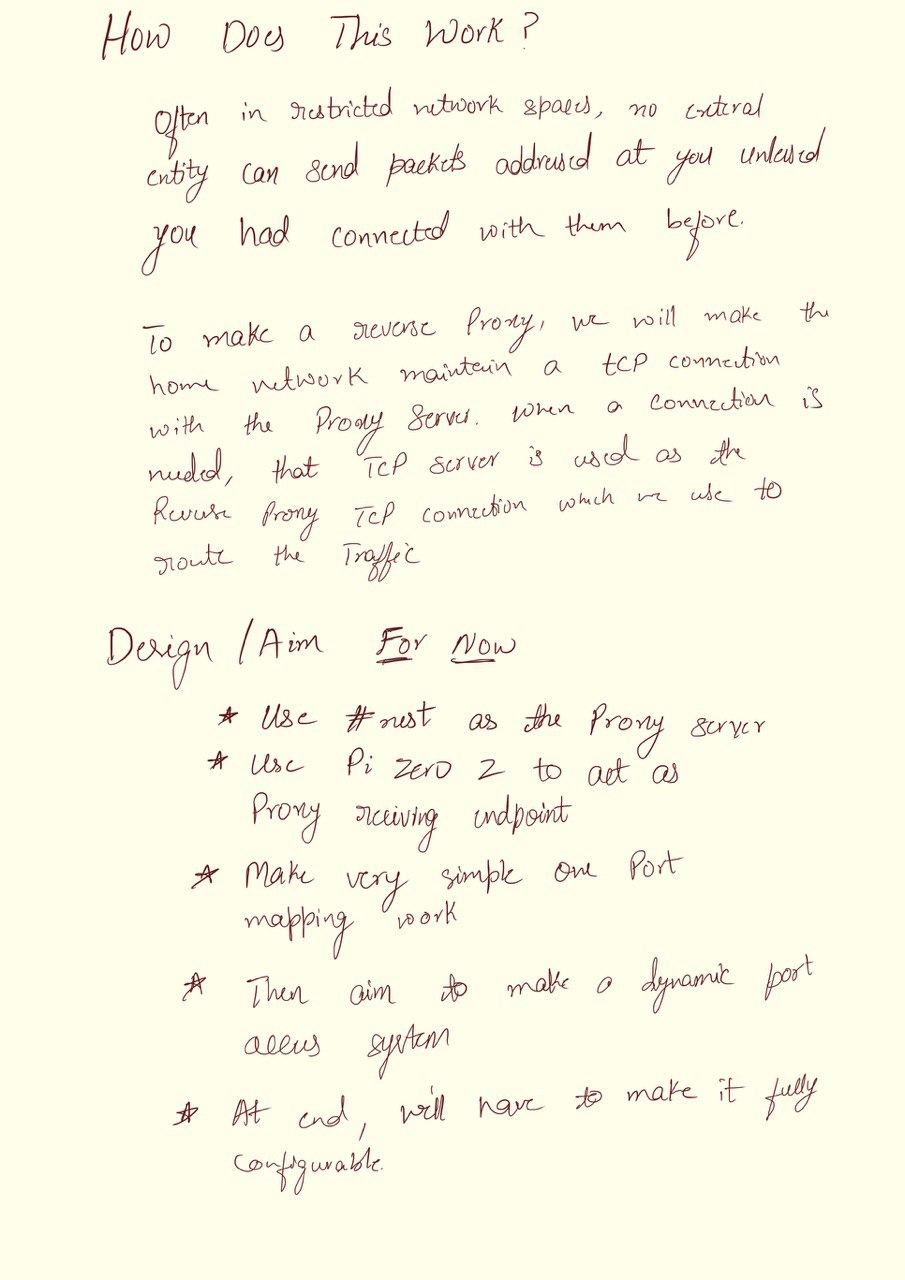 How Does This Work?
Often in restricted network spaces, no external
entity can send packets addressed at you unlessed
you had connected with them before.
To make a reverse Proxy, we will make the
home network maintein a TCP connection
with the Proxy Server. When a connection is
needed, that TCP server is used as the
Reverse Proxy TCP connection which we use to
route the Traffic
Design / Aim For Now
* Use #nest as the Proxy server
* Use Pi Zero 2 to act as
Proxy receiving endpoint
* Make very simple one Port
mapping work
* Then aim to make a dynamic port
access system
* At end, will have to make it fully
configurable.